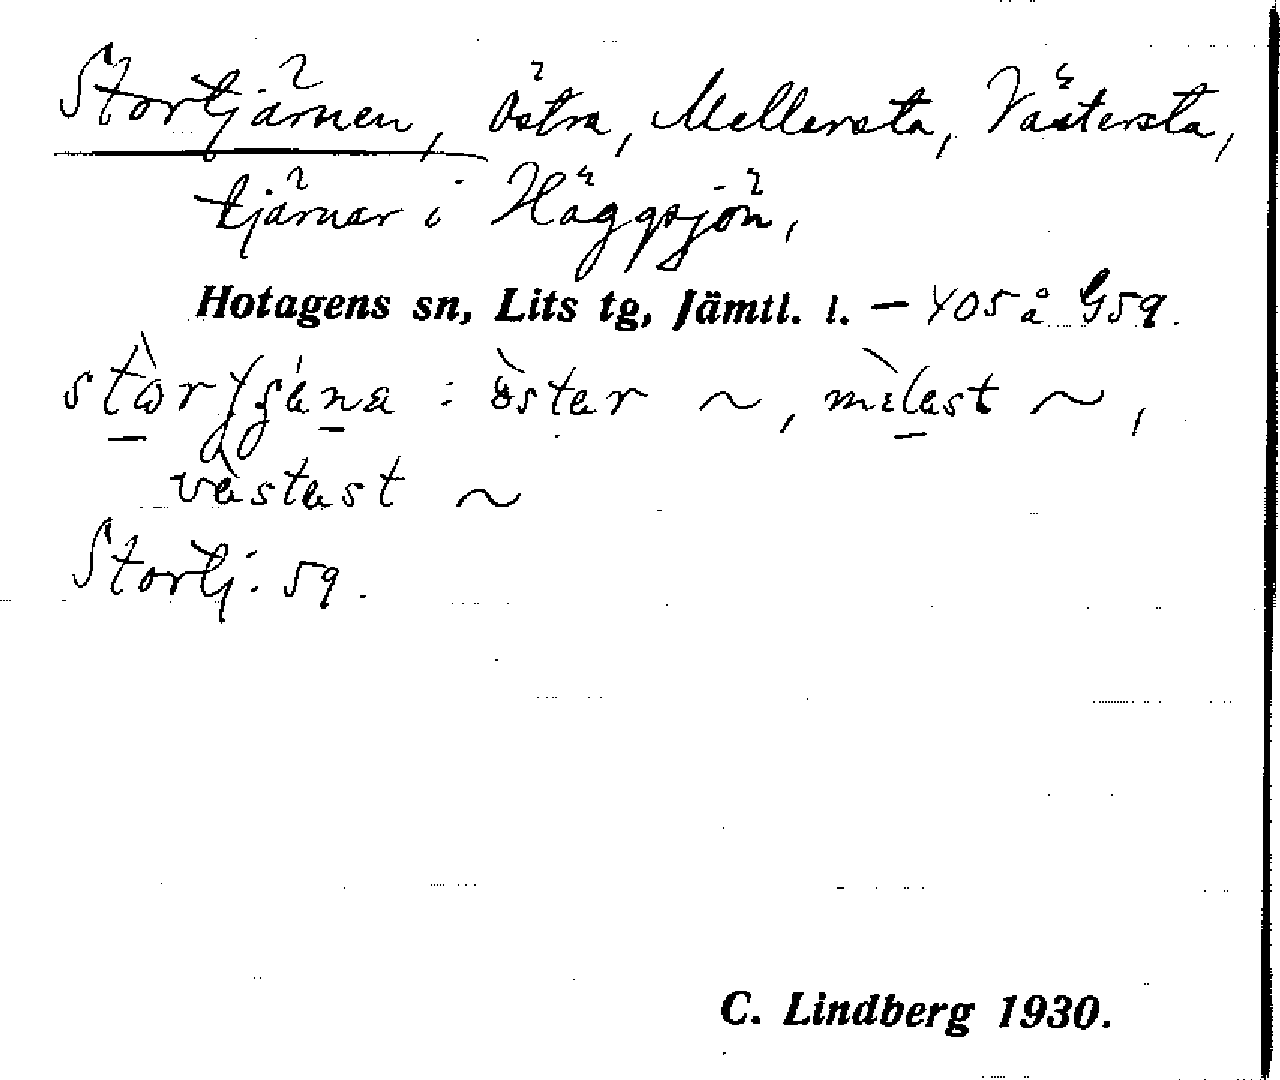 Stortjärnen, Östra, Mellersta, Västersta,
tjärnar i Häggsjön,
Hotagens sn, Lits tg, Jämtl. l. – 405 å G59.
: öster ~, ~,
västast ~
Stortj. 59.
C. Lindberg 1930.